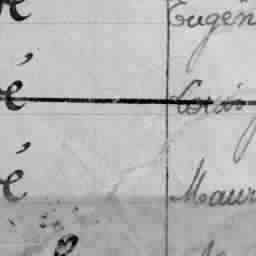 é Eugèn
é Louis
é Maur